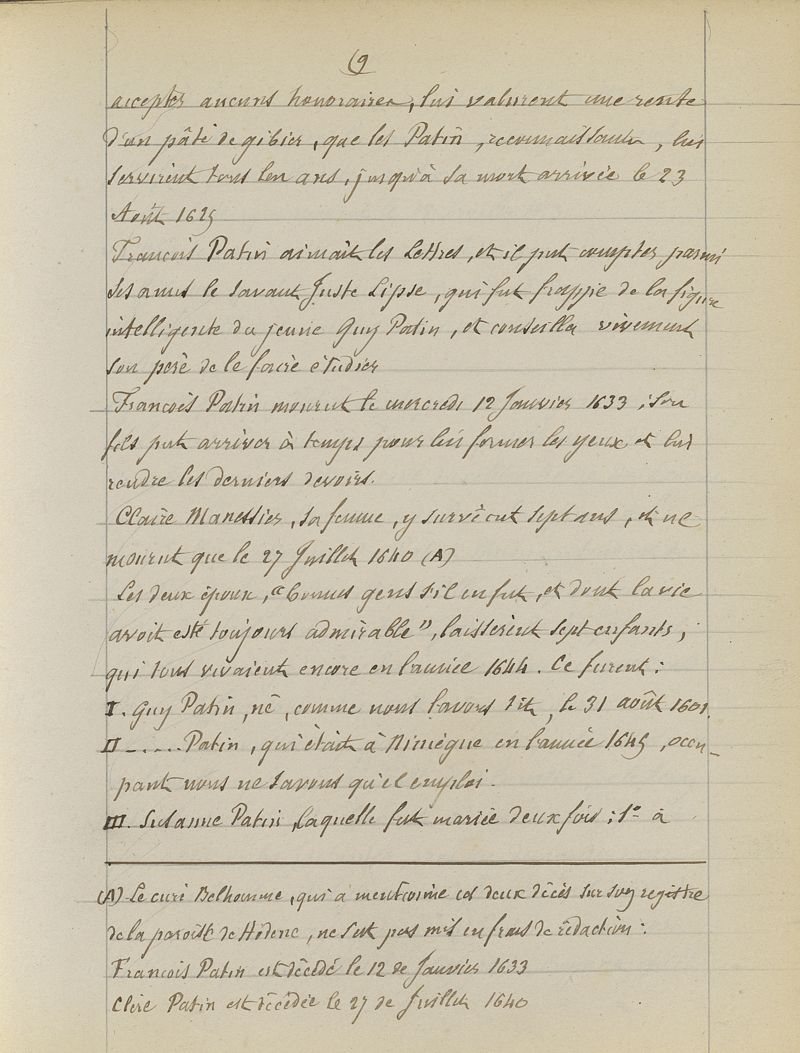 9
accepter aucuns honoraires, lui valurent une rente
d'un pâté de gibier, que les Patin, reconnaissants, lui
servirent tous les ans, jusqu'à sa mort arrivée le 23
Août 1625
François Patin aimait les lettres, et il put compter parmi
ses amis le savant Juste Lipse, qui fut frappé de la figure
intelligente du jeune Guy Patin, et conseilla vivement
son père de le faire étudier
François Patin mourut le mercredi 12 Janvier 1633 ; son
fils put arriver à temps pour lui fermer les yeux et lui
rendre les derniers devoirs.
Claire Manessier, sa femme, y survécut sept ans, et ne
mourut que le 27 Juillet 1640 (A)
Les deux époux, "bonnes gens s'il en fut, et dont la vie
avoit esté toujours admirable", laissèrent sept enfants,
qui tous vivaient encore en l'année 1644. Ce furent :
I. Guy Patin, né, comme nous l'avons dit, le 31 août 1601.
II ..... Patin, qui était à Nimègue en l'année 1645, occu-
pant nous ne savons quel emploi.
III. Susanne Patin, laquelle fut mariée deux fois ; 1° à
(A) Le curé Belhomme, qui a mentionné ces deux décès sur son registre
de la paroisse de Hodenc, ne s'est pas mis en frais de rédaction :
François Patin est décédé le 12 de Janvier 1633
Clère Patin est décédée le 27 de Juillet 1640